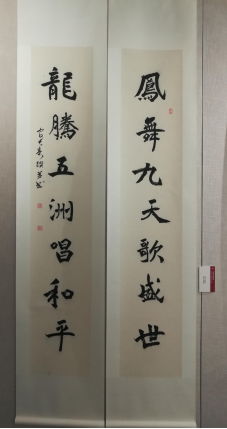 鳳舞九天歌盛世
龍騰五洲唱和平